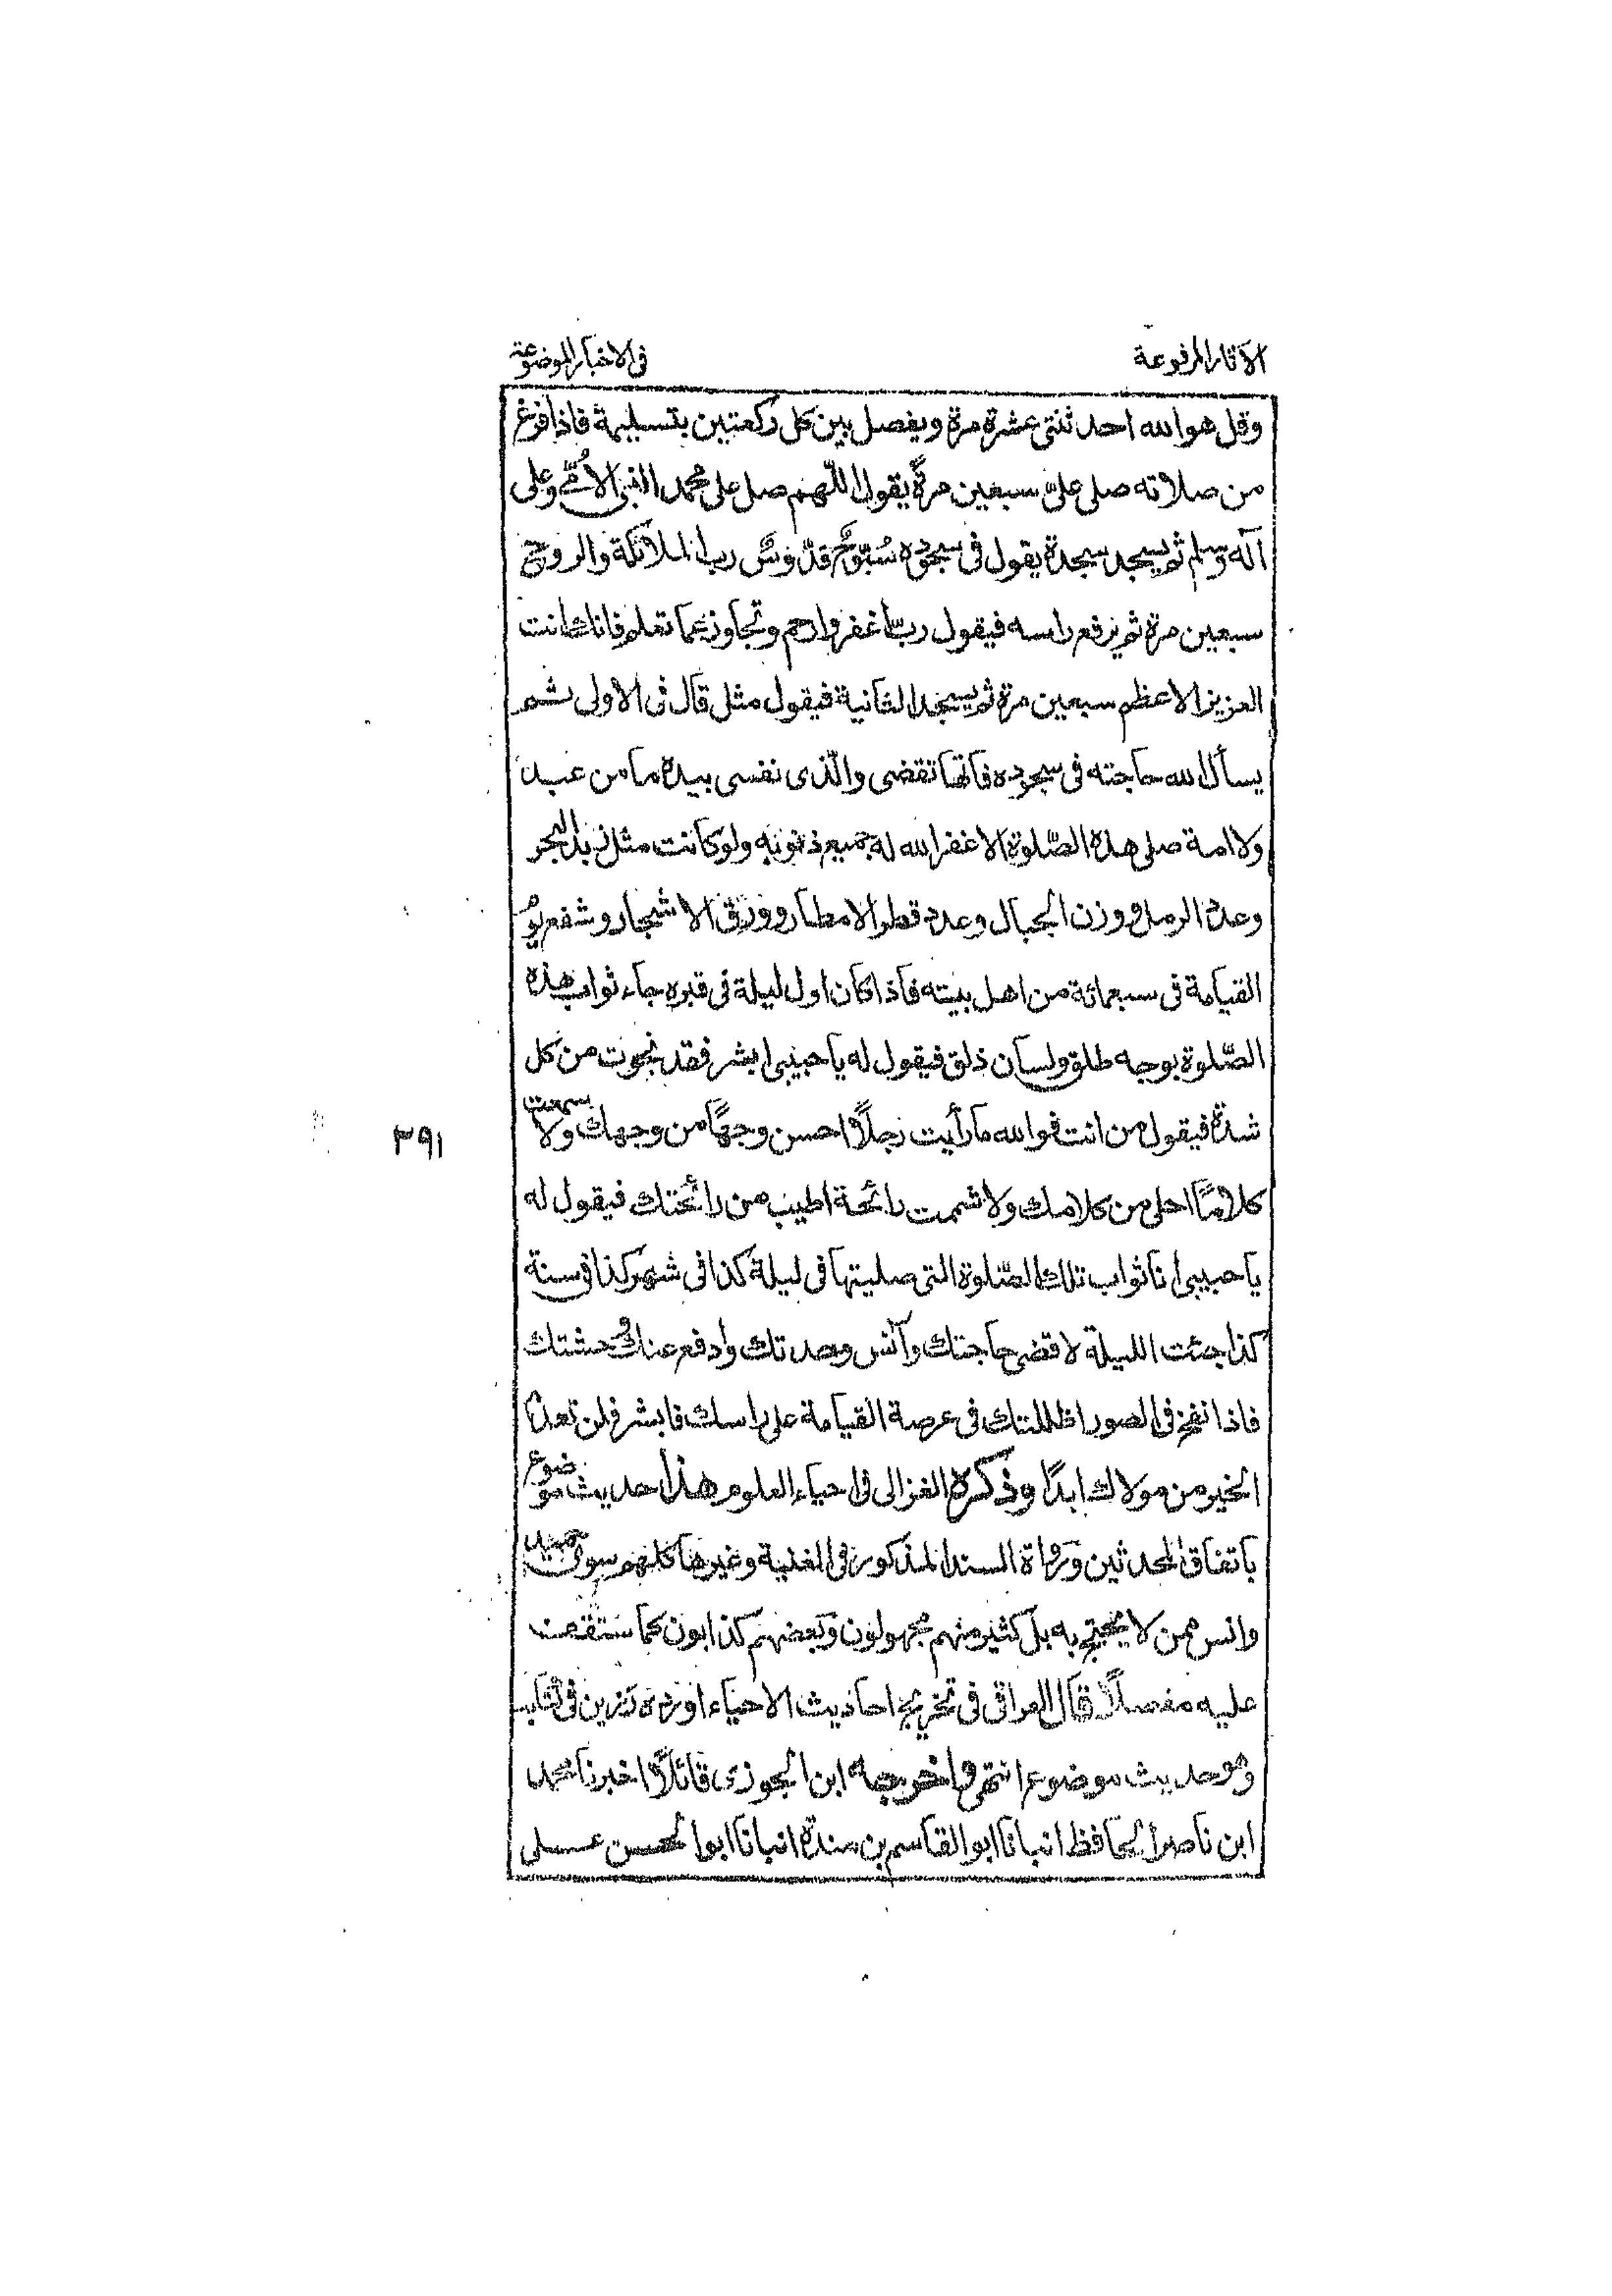 الآثار المرفوعة
فى الاخبار الموضوعة
وقل هو الله احد ثنتى عشرة مرة ويفصل بين كل ركعتين بتسليمة فاذا فرغ
من صلاته صلى علىّ سبعين مرةً يقول اللّهم صل على محمد النبى الأُمّى وعلى
آله وسلم ثم يسجد سجدة يقول فى سجوده سُبّوحٌ قدّوسٌ رب الملائكة والروح
سبعين مرة ثم يرفع راسه فيقول ربّ اغفر وارحم وتجاوز عما تعلم فانك انت
العزيز الاعظم سبعين مرة ثم يسجد الثانية فيقول مثل قال فى الاولى ثم
يسأل الله حاجته فى سجوده فانها تقضى والّذى نفسى بيده ما من عبد
ولا امة صلى هذه الصّلوة الا غفر الله له جميع ذنوبه ولو كانت مثل زبد البحر
وعدد الرمل ووزن الجبال وعدد قطر الامطار وورق الاشجار وشفع يوم
القيامة فى سبعمائة من اهل بيته فاذا كان اول ليلة فى قبره جاء ثواب هذه
الصّلوة بوجه طلق ولسان ذلق فيقول له يا حبيبى ابشر فقد نجوت من كل
شدة فيقول من انت فوالله ما رأيت رجلاً احسن وجهًا من وجهك ولا سمعت
٣٩١
كلامًا احلى من كلامك ولا شممت رائحة اطيب من رائحتك فيقول له
يا حبيبى انا ثواب تلك الصّلوة التى صليتها فى ليلة كذا فى شهر كذا فى سنة
كذا جئت الليلة لاقضى حاجتك وآنس وحدتك وادفع عنك وحشتك
فاذا نفخ فى الصور اظللتك فى عرصة القيامة على راسك فابشر فلن تعدم
الخير من مولاك ابدًا وذكره الغزالى فى احياء العلوم هذا حديث موضوع
باتفاق المحدثين ورواة السند المذكور فى الغنية وغيرها كلهم سوى حميد
وانس ممن لا يحتج به بل كثير منهم مجهولون وبعضهم كذابون كما ستقف
عليه مفصلاً قال العراقى فى تخريج احاديث الاحياء اورده رزين فى كتابه
وهو حديث موضوع انتهى واخرجه ابن الجوزى قائلاً اخبرنا محمد
ابن ناصر الحافظ انبانا ابو القاسم بن مندة انبانا ابو الحسن على